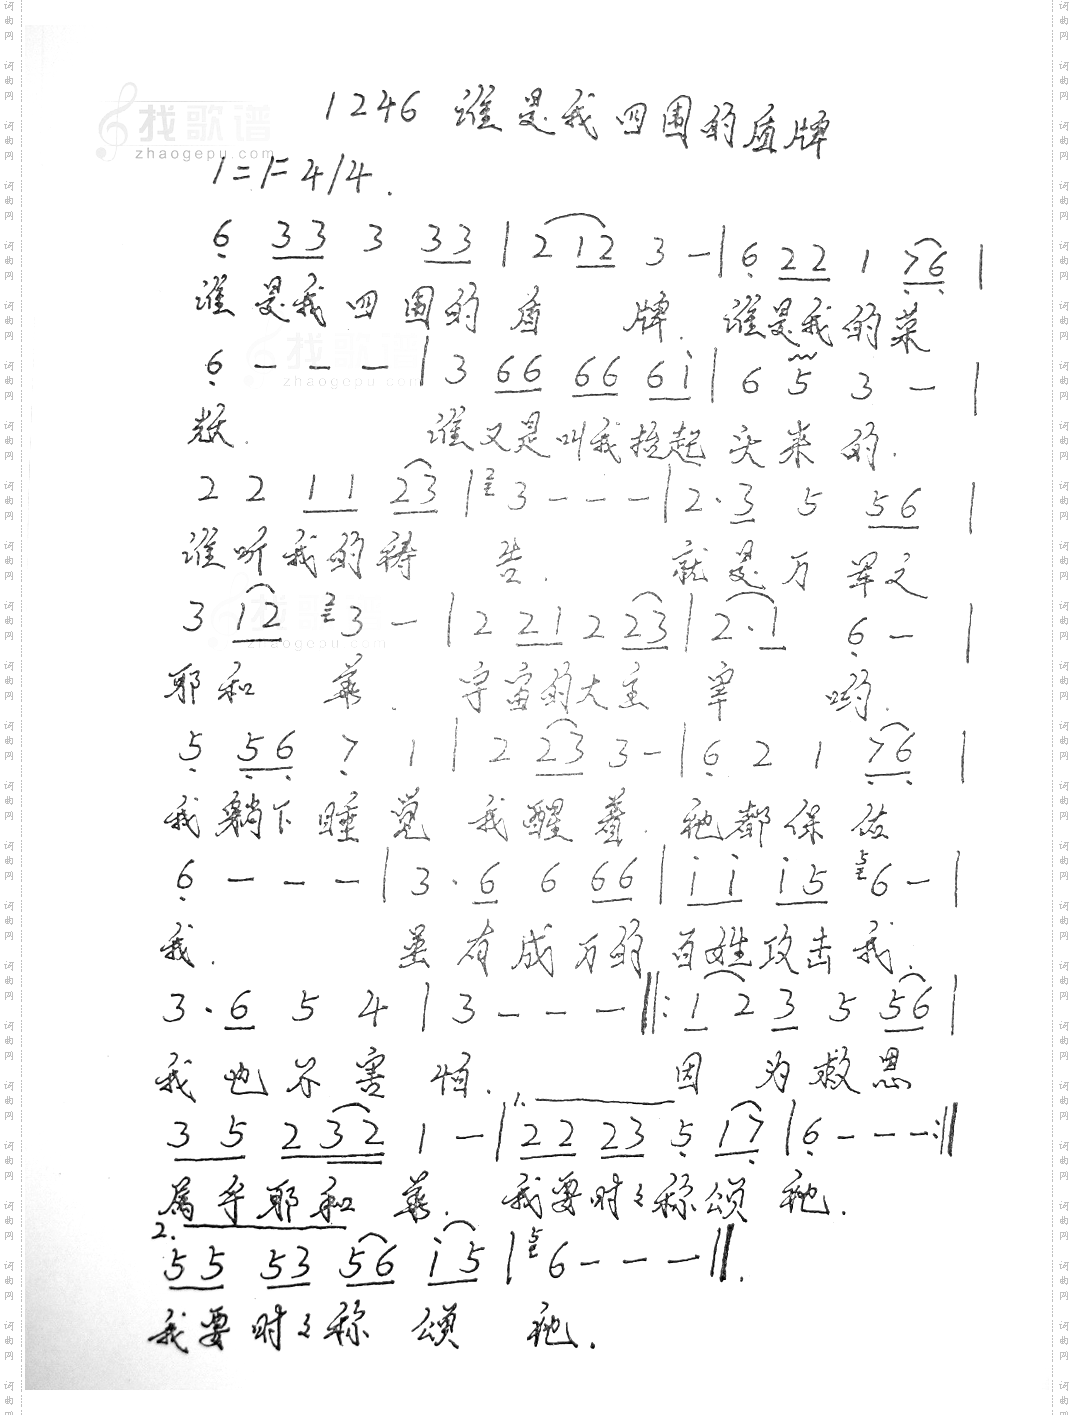 找歌谱
zhaogepu.com
1246 谁是我四围的盾牌
1=F 4/4.
6 33 3 33 | 2 12 3 - | 6 22 1 76 |
谁是我四围的盾 牌. 谁是我的荣
6 - - - | 3 66 66 6i | 6 5 3 - |
耀. 谁又是叫我抬起头来的.
2 2 11 23 | 3 - - - | 2·3 5 56 |
谁听我的祷 告. 就是万军之
3 12 3 - | 2 21 2 23 | 2·1 6 - |
耶和 华. 宇宙的大主 宰 哟.
5 56 7 1 | 2 23 3 - | 6 2 1 76 |
我躺下睡觉 我醒着. 祂都保佑
6 - - - | 3·6 6 66 | i i i5 6 - |
我. 虽有成万的百姓攻击我.
3·6 5 4 | 3 - - - ‖: 1 2 3 5 56 |
我也不害怕. 因 为救恩
1.
35 232 1 - | 22 23 5 17 | 6 - - - :‖
属乎耶和 华. 我要时々称颂 祂.
2.
55 53 56 i5 | 6 - - - ‖.
我要时々称 颂 祂.